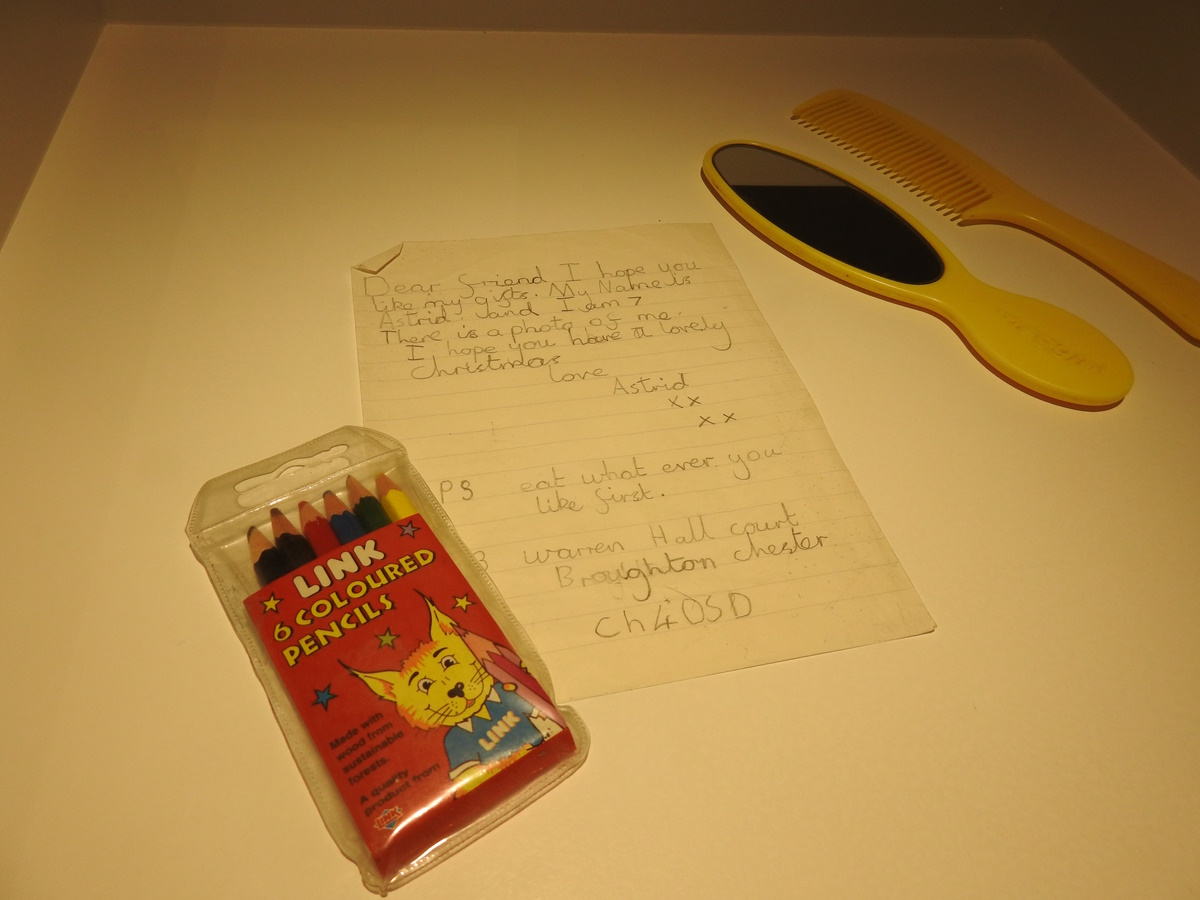 Dear friend I hope you
like my gifts. My Name is
Astrid and I am 7
There is a photo of me.
I hope you have a lovely
Christmas
love
Astrid
xx
xx
PS eat what ever you
like first.
3 warren Hall court
Broughton chester
Ch4 0SD
LINK
6 COLOURED
PENCILS
Made with
wood from
sustainable
forests.
A quality
product from
LINK
LINK